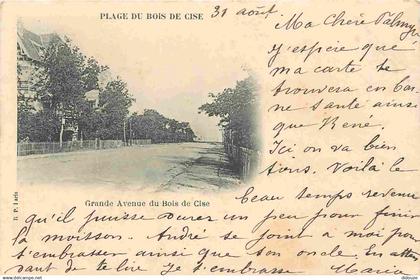 PLAGE DU BOIS DE CISE
31 août
Ma Chère Palmyre
J'espère que
ma carte te
trouvera en bon-
ne santé ainsi
que René.
Ici on va bien
tous. Voilà le
beau temps revenu
qu'il puisse durer un peu pour finir
la moisson. André se joint a moi pour
t'embrasser ainsi que son oncle. En atten
dant de te lire je t'embrasse.
Grande Avenue du Bois de Cise
B. F. Paris
delcampe